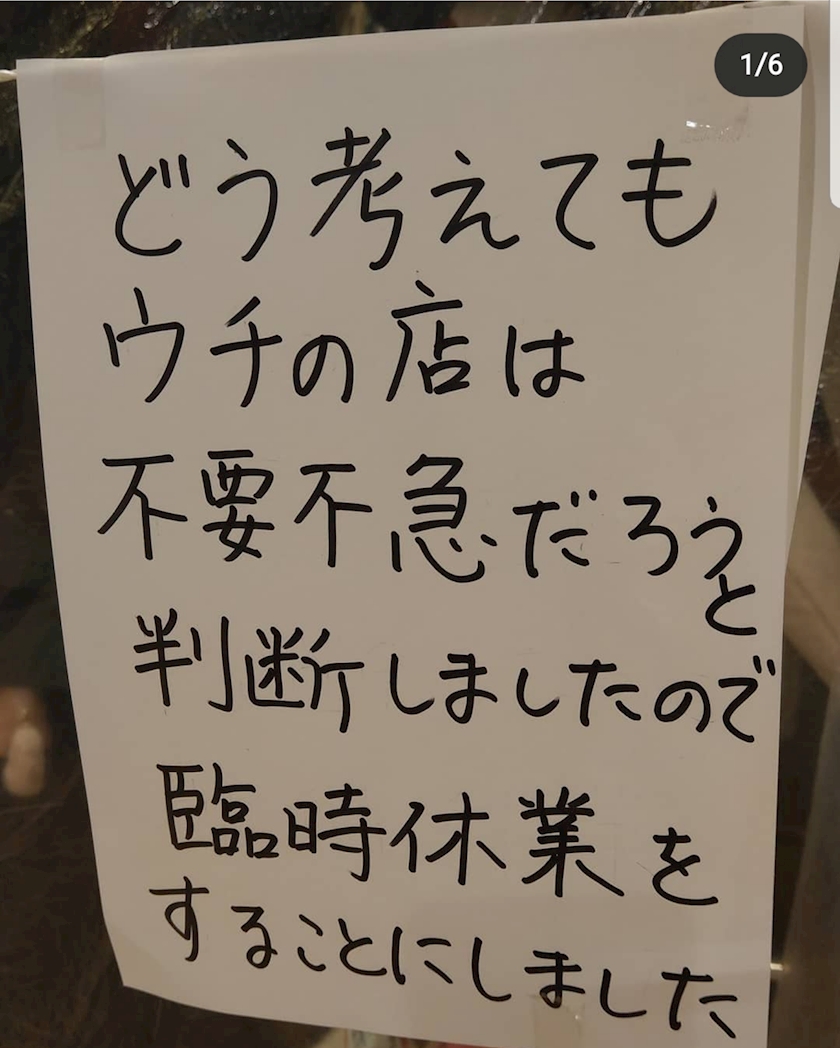 1/6
どう考えても
ウチの店は
不要不急だろうと
判断しましたので
臨時休業を
することにしました